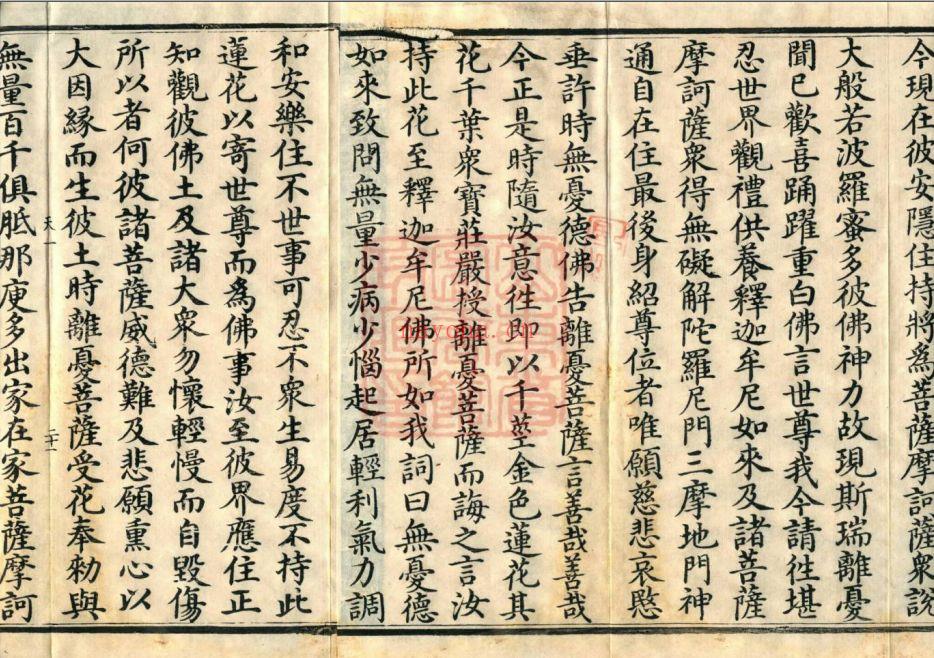 今現在彼安隱住持將為菩薩摩訶薩眾說
大般若波羅蜜多彼佛神力故現斯瑞離憂
聞已歡喜踊躍重白佛言世尊我今請往堪
忍世界觀禮供養釋迦牟尼如來及諸菩薩
摩訶薩眾得無礙解陀羅尼門三摩地門神
通自在住最後身紹尊位者唯願慈悲哀愍
垂許時無憂德佛告離憂菩薩言善哉善哉
今正是時隨汝意往即以千莖金色蓮花其
花千葉眾寶莊嚴授離憂菩薩而誨之言汝
持此花至釋迦牟尼佛所如我詞曰無憂德
如來致問無量少病少惱起居輕利氣力調
和安樂住不世事可忍不眾生易度不持此
蓮花以寄世尊而為佛事汝至彼界應住正
知觀彼佛土及諸大眾勿懷輕慢而自毀傷
所以者何彼諸菩薩威德難及悲願熏心以
大因緣而生彼土時離憂菩薩受花奉勑與
天一 二十二
無量百千俱胝那庾多出家在家菩薩摩訶